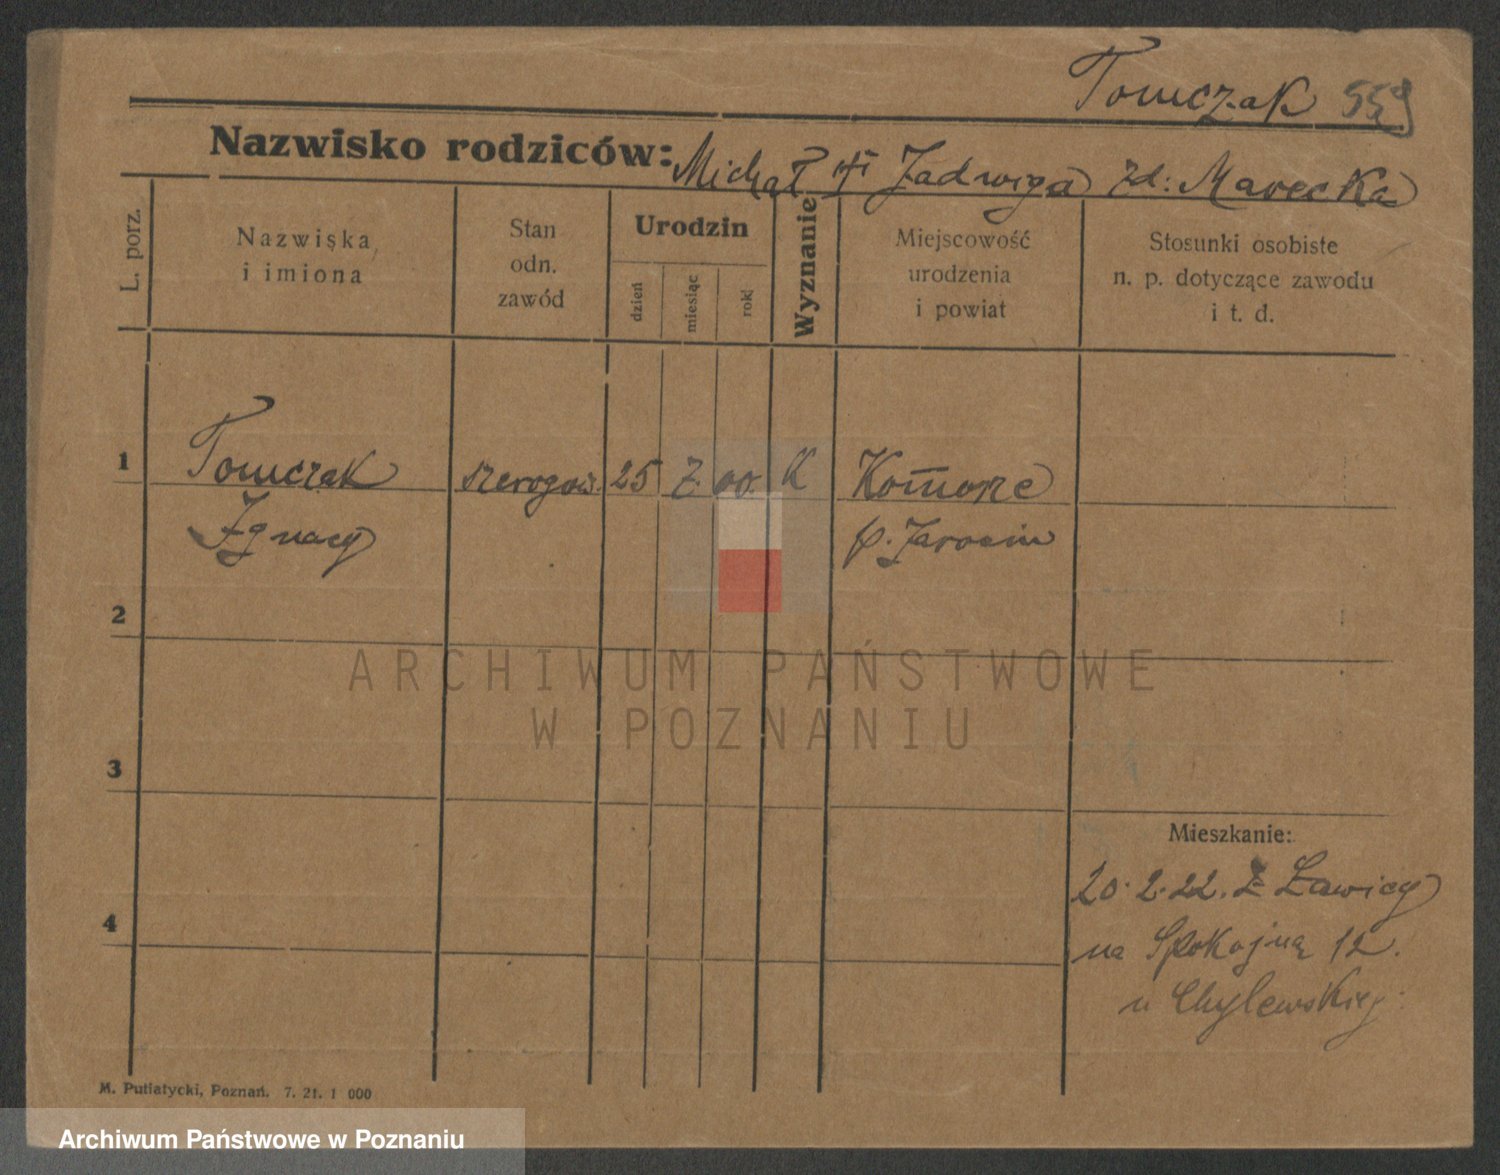 Tomczak 559
Nazwisko rodziców: Michał i Jadwiga zd: Marecka
L. porz.
Nazwiska
i imiona
Stan
odn.
zawód
Urodzin
dzień
miesiąc
rok
Wyznanie
Miejscowość
urodzenia
i powiat
Stosunki osobiste
n. p. dotyczące zawodu
i t. d.
1
Tomczak szerogow. 25 7. 00. K Komorze
Ignacy p. Jarocin
2
3
4
Mieszkanie:
20. 2. 22. Z Ławicy
na Spokojną 12.
u Chylewskiej.
M. Putiatycki, Poznań. 7. 21. 1 000
ARCHIWUM PAŃSTWOWE
W POZNANIU
Archiwum Państwowe w Poznaniu